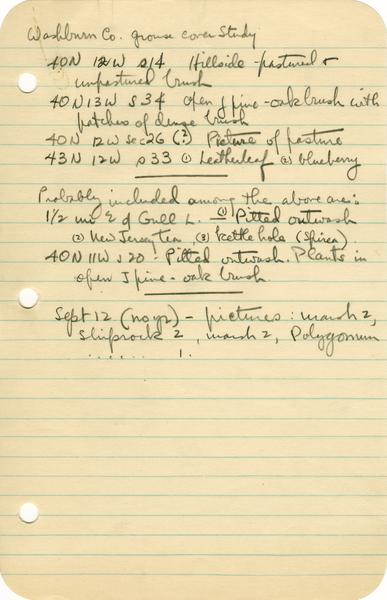 Washburn Co. grouse cover Study
40N 12W s14 Hillside - pastured &
unpastured brush
40N 13W s34 open J pine - oak brush with
patches of dense brush
40N 12W sec 26 (?) Picture of pasture
43N 12W s33 (1) Leatherleaf (2) blueberry
Probably included among the above are:
1/2 mi E of Gull L. - (1) Pitted outwash
(2) New Jersey Tea, (3) kettle hole (Spirea)
40N 11W s20: Pitted outwash. Plants in
open J pine - oak brush.
Sept 12 (no yr) - pictures: marsh 2,
Shiprock 2, marsh 2, Polygonum